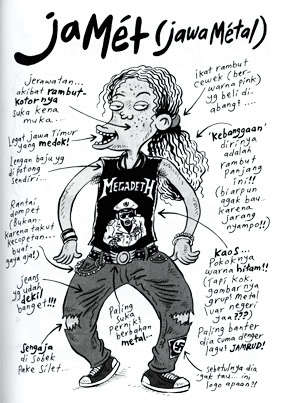 jaMét (jawa Métal)
Jerawatan...
akibat rambut-
kotornya
suka kena
muka...
Logat jawa Timur
yang medok!
Lengan baju yg
di potong
sendiri...
Rantai
dompet
(Bukan
karena takut
kecopetan...
buat
gaya aja!)
jeans
yg udah
dekil
banget!!!
Sengaja
di sobek
Pake Silet...
Paling
suka
pernik2
berbahan
metal...
ikat rambut
cewek (ber-
warna pink)
yg beli di
abang2....
'kebanggaan'
dirinya
adalah
rambut
panjang
ini!!
(biarpun
agak bau...
karena
jarang
nyampo!!)
MEGADETH
kaos...
Pokoknya
warna hitam!!
(Tapi kok
gambarnya
grup2 metal
luar negeri
ya???)
Paling banter
dia cuma denger
lagu2 JAMRUD!
sebetulnya dia
gak tau... ini
logo apaan!!